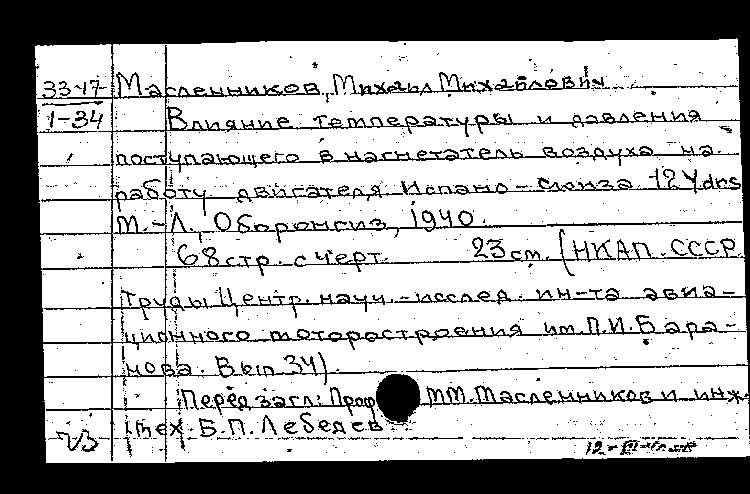 33-17 Масленников, Михаил Михайлович
1-34 Влияние температуры и давления
поступающего в нагнетатель воздуха на
работу двигателя Испано-Сюиза 12 Ydrs
М.-Л., Оборонгиз, 1940.
68 стр. с черт. 23 см. (НКАП. СССР
Труды Центр. науч.-исслед. ин-та авиа-
ционного моторостроения им. П.И. Бара-
нова. Вып 34).
Перед загл: Проф ММ. Масленников и инж-
мех. Б.П. Лебедев